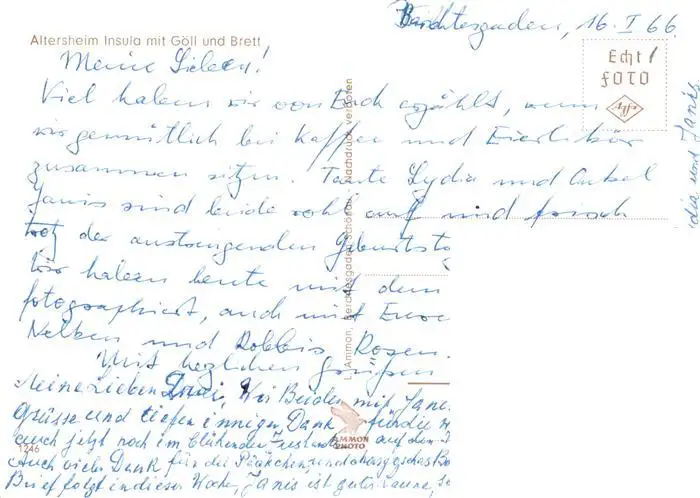 Berchtesgaden, 16. I 66
Altersheim Insula mit Göll und Brett
Echt
FOTO
Meine Lieben!
Viel haben wir von Euch erzählt, wenn
wir gemütlich bei Kaffee und Eierlikör
zusammen sitzen. Tante Lydia und Onkel
Janis sind beide wohl auf und frisch
trotz der anstrengenden Geburtstag
Wir haben heute mit dem
fotographiert, auch mit Eure
Nelken und Robbis Rosen.
Mit herzlichen Grüßen
L. Ammon, Berchtesgaden-Schönau, Nachdruck verboten
Meine Lieben Drei, Wir Beiden mit Janis
Grüsse und tiefen innigen Dank für die
auch jetzt noch im blühenden auf den
Auch vielen Dank für die Päckchen
Brief folgt in dieser Woche, Janis ist guter Laune,
AMMON
PHOTO
1246
und Janis